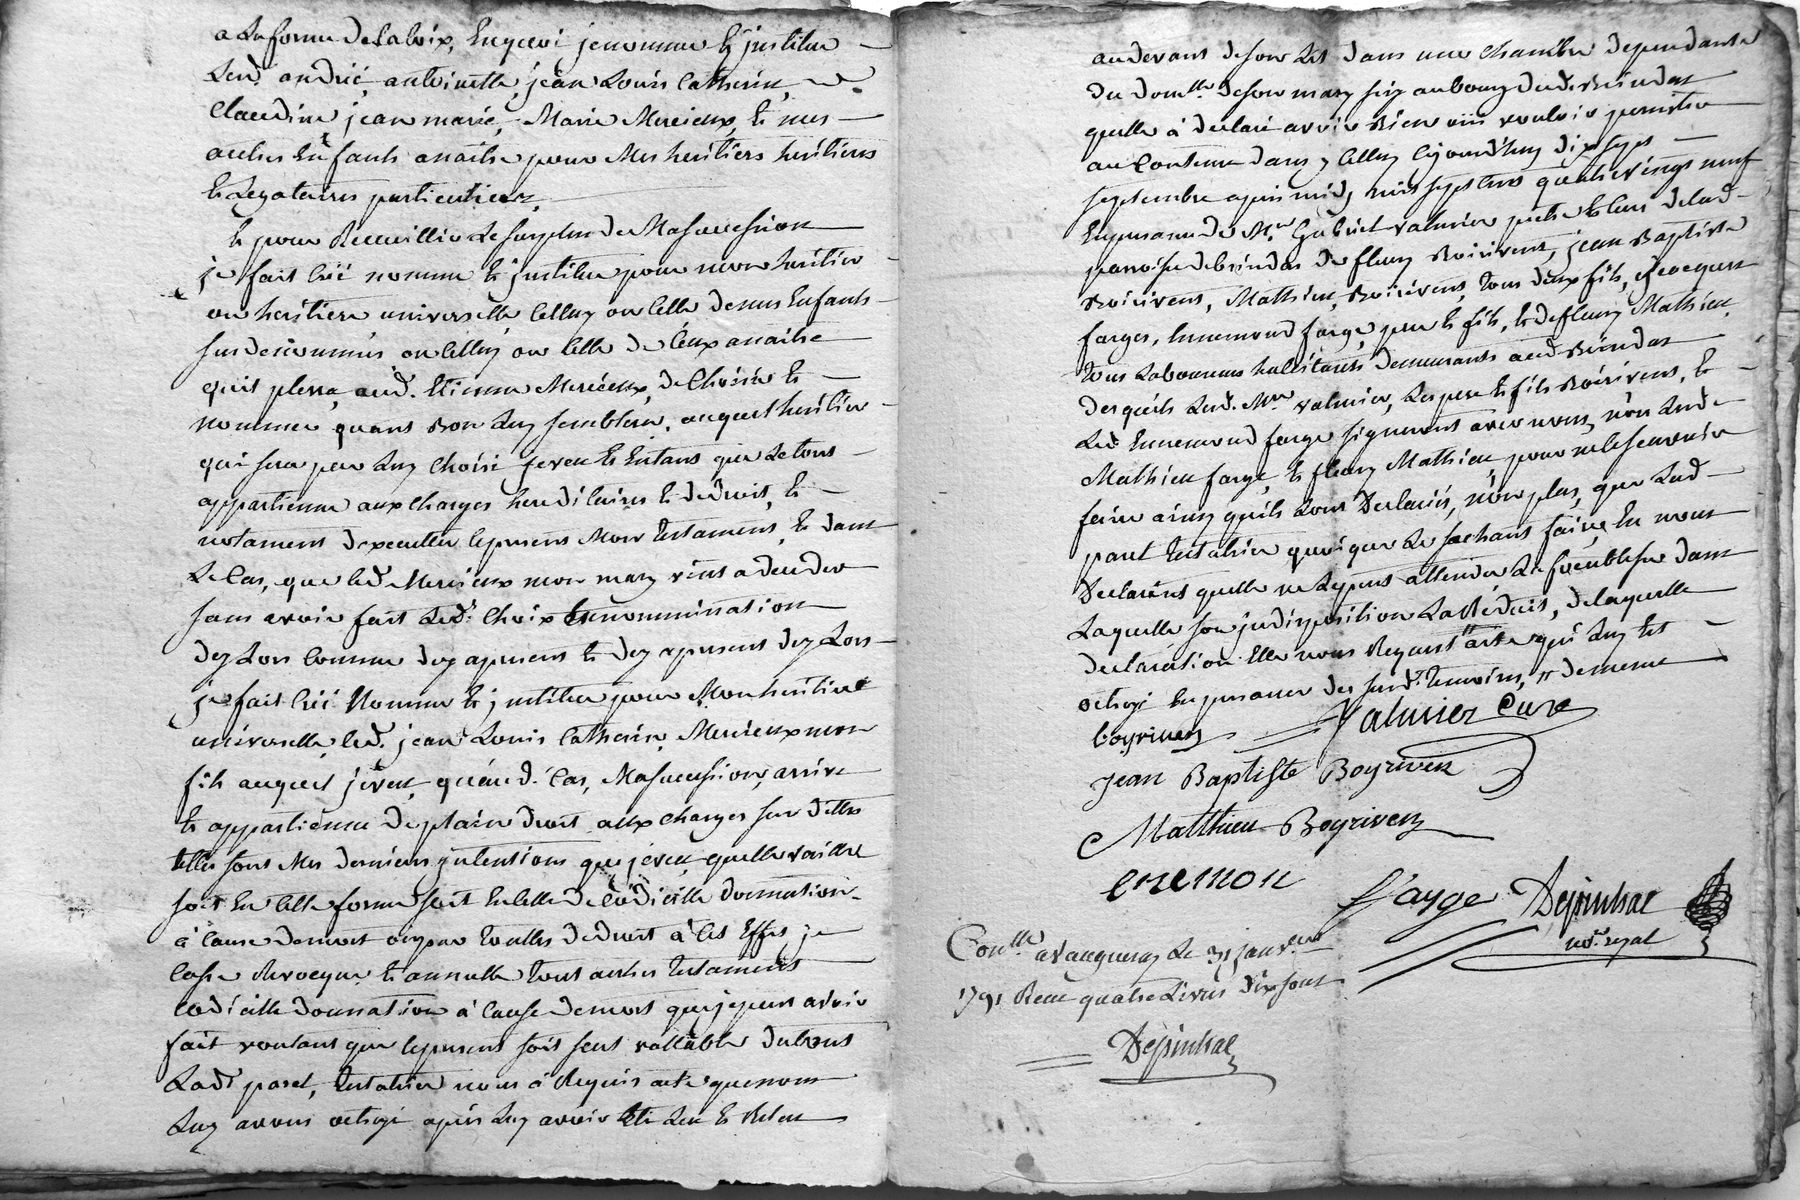 a la forme de la loix, Enquoi je nomme & jnstitue
Lesd. andrié, antoinette, jean Louis Catherin,
Claudine jean marie, Marie Mercieux, & mes
autres Enfants anaitre pour Mes heritiers heritieres
& Legataires particuliers,
Et pour Recueillir Le surplus de Ma succession
je fait créé nomme & jnstitue pour mon heritier
ou heritiere universelle celluy ou celle de mes Enfants
susdenommés ou celluy ou celle de ceux anaitre
quil plerra, aud. Etienne Mercieux, de Choisir &
nommer quant Bon Luy semblera, auquel heritier
qui sera par Luy Choisi je veux & Entans que Le tous
appartienne aux charges hereditaires & de droit, &
notament d'executer le present Mon testament, & dans
Le Cas, que led. Mercieux mon mary vint a deceder
sans avoir fait Led. Choix & nommination
dez Lors comme dez apresent & dez apresent dez Lors
je fait créé Nomme & jnstitue pour Mon heritier
universelle, led. jean Louis Catherin, Mercieux mon
fils auquel je veux, qu'aud. Cas, Ma succession, arrive
& appartienne de plain droit aux charges sus dittes
telles sont Mes dernieres jntentions que je veux quelle vaille
soit En cette forme soit En celle de codicille donnation
à Cause de mort ou par touttes de droit à Cet Effet je
Casse Revoque & annulle tous autres testaments
codicille donnation à Cause demort que je peut avoir
fait voulant que le present soit seul vallable dubout
Lad. paret, testatrice nous à Requis acte que nous
Luy avons octroyé après Luy avoir Eté Leu & Releu
audevant de son Lit dans une chambre dependante
du domlle de son mary size au bourg dud. Brindas
quelle à declaré avoir Bien oüi vouloir persister
au Contenu dans y celluy cejourdhuy dix sept
septembre après midy mil sept cens quatrevingt neuf
En presence de Mre Gabriel valmier pretre & curé de lad.
parroisse de brindas de fleury Boirivens, jean Baptiste
Boirivens, Mathieu, Boirivens, tous deux fils, Jacques
farges, Ennemond farge, pere & fils, & de fleury Mathieu,
tous Laboureurs habitants demeurants aud. Brindas
desquels Led. Mre valmier, Les pere & fils Boirivens, &
Led. Ennemond farge signeront avec nous, non Led.
Mathieu farge, & fleury Mathieu, pour ne le scavoir
faire ainsy quils L'ont Declarés, non plus, que Lad.
paret testatrice quoique Le sachant faire, En nous
Declarant quelle ne Le peut attendu La foiblesse dans
Laquelle son jndisposition La Réduit, de laquelle
declaration Elle nous Requiert acte qui Luy Est
octroyé En presence des susd. temoins, // de meme
boyriven Valmier Curé
jean Baptiste Boyriven
Matthieu Boyriven
enemon farge Dejinhac
not. royal
Conlle a vaugneray Le 31 janvier
1791 Reçu quatre Livres dix sous
Dejinhac